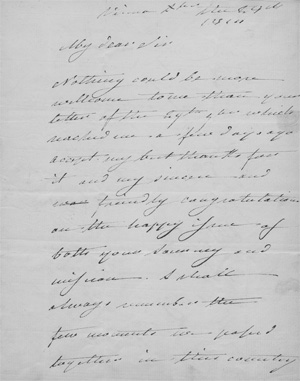 My dear Sir
Nothing could be more
welcome to me than your
letter of the which
reached me a few days ago
accept my best thanks for
it and my sincere and
friendly congratulations
on the happy issue of
both your Journey and
mission. I shall
always remember the
few moments we passed
together in this country